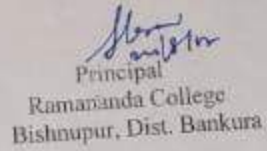 Principal
Ramananda College
Bishnupur, Dist. Bankura